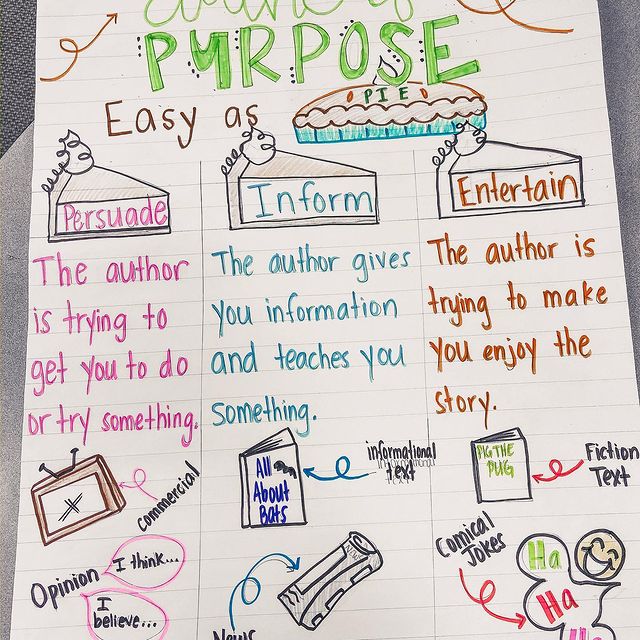 PURPOSE
Easy as
PIE
Persuade
Inform
Entertain
The author
is trying to
get you to do
or try something.
The author gives
you information
and teaches you
something.
The author is
trying to make
you enjoy the
story.
commercial
All
About
Bats
informational
text
PIG THE
PUG
Fiction
Text
Opinion
I think...
I
believe...
News
Comical
Jokes
Ha
Ha